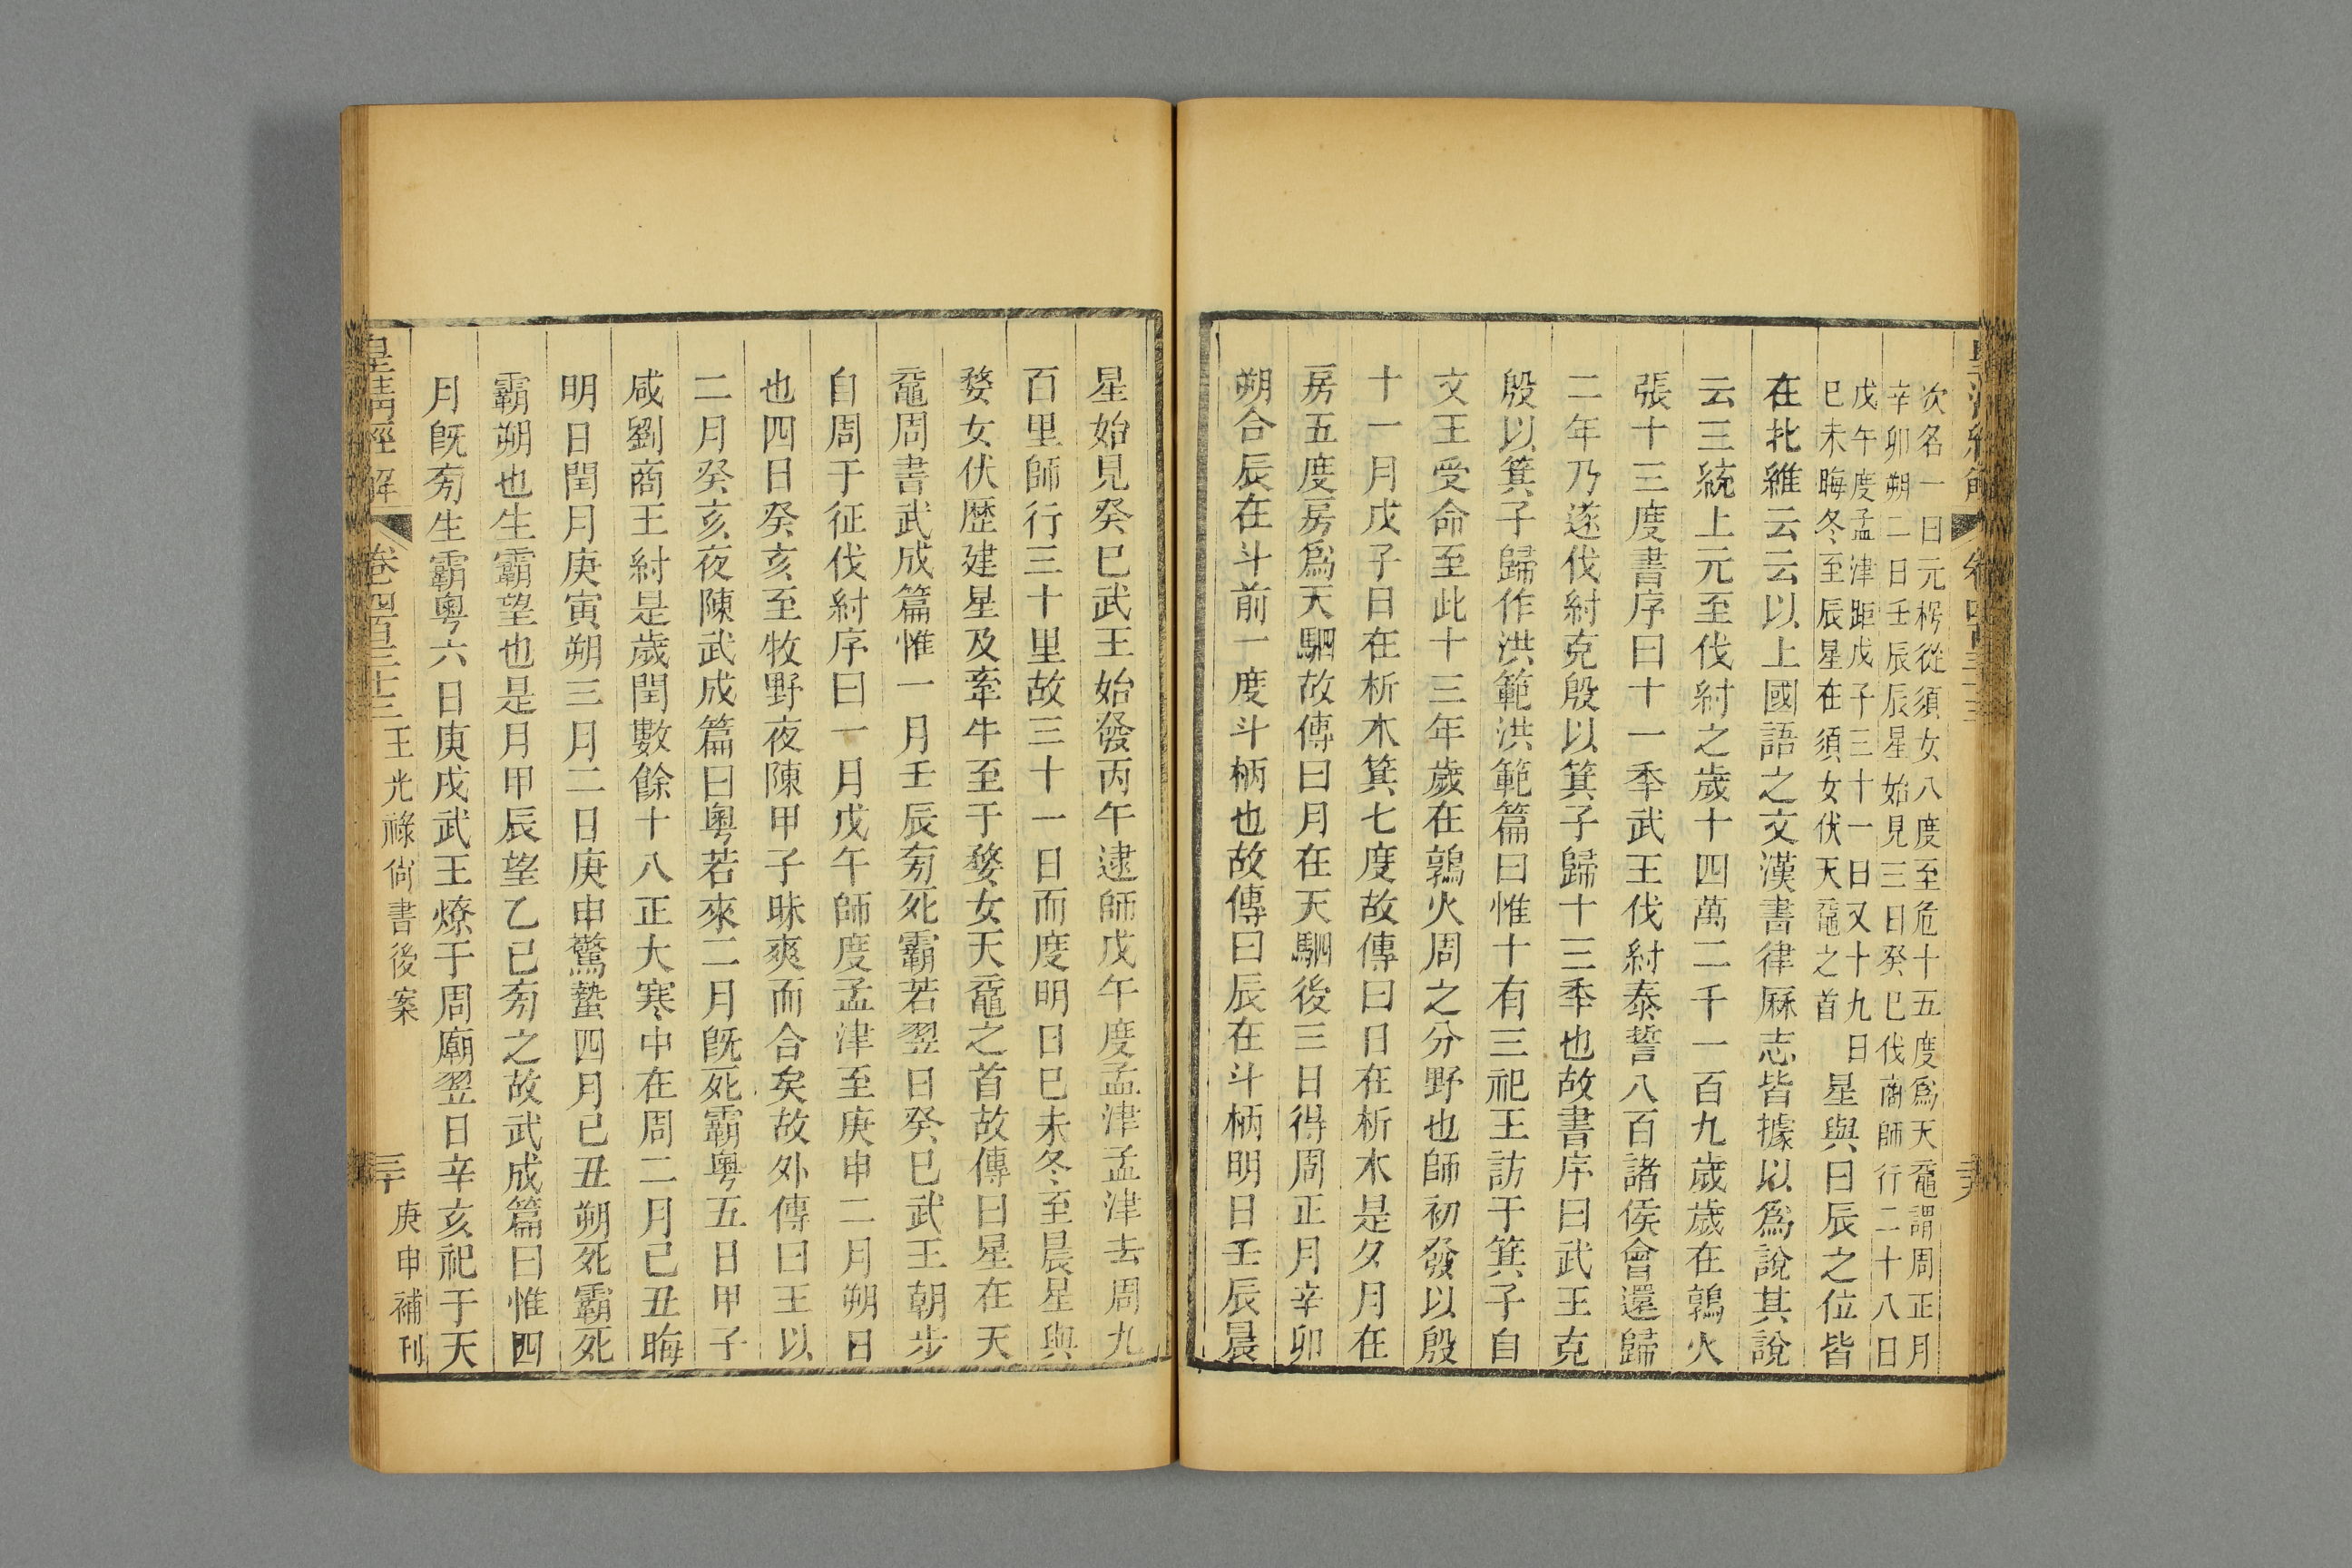 次名一曰元枵從須女八度至危十五度爲天黿謂周正月
辛卯朔二日壬辰辰星始見三日癸巳伐商師行二十八日
戊午度孟津距戊子三十一日又十九日
巳未晦冬至辰星在須女伏天黿之首
星與日辰之位皆
在北維云云以上國語之文漢書律厤志皆據以爲說其說
云三統上元至伐紂之歲十四萬二千一百九歲歲在鶉火
張十三度書序曰十一秊武王伐紂泰誓八百諸侯會還歸
二年乃遂伐紂克殷以箕子歸十三秊也故書序曰武王克
殷以箕子歸作洪範洪範篇曰惟十有三祀王訪于箕子自
文王受命至此十三年歲在鶉火周之分野也師初發以殷
十一月戊子日在析木箕七度故傳曰日在析木是夕月在
房五度房爲天駟故傳曰月在天駟後三日得周正月辛卯
朔合辰在斗前一度斗柄也故傳曰辰在斗柄明日壬辰晨
星始見癸巳武王始發丙午逮師戊午度孟津孟津去周九
百里師行三十里故三十一日而度明日巳未冬至晨星與
婺女伏歷建星及牽牛至于婺女天黿之首故傳曰星在天
黿周書武成篇惟一月壬辰㫄死霸若翌日癸巳武王朝步
自周于征伐紂序曰一月戊午師度孟津至庚申二月朔日
也四日癸亥至牧野夜陳甲子昧爽而合矣故外傳曰王以
二月癸亥夜陳武成篇曰粵若來二月旣死霸粵五日甲子
咸劉商王紂是歲閏數餘十八正大寒中在周二月己丑晦
明日閏月庚寅朔三月二日庚申驚蟄四月己丑朔死霸死
霸朔也生霸望也是月甲辰望乙巳㫄之故武成篇曰惟四
月旣㫄生霸粵六日庚戌武王燎于周廟翌日辛亥祀于天
皇淸經解
卷四百二十三
王光祿尙書後案
三十
庚申補刊